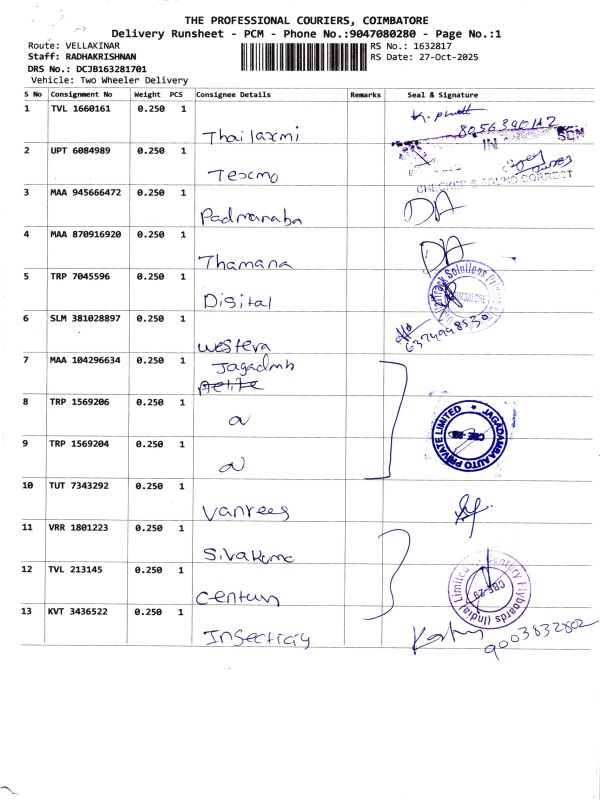 THE PROFESSIONAL COURIERS, COIMBATORE
Delivery Runsheet - PCM - Phone No.:9047080280 - Page No.:1
Route: VELLAKINAR
Staff: RADHAKRISHNAN
DRS No.: DCJB163281701
Vehicle: Two Wheeler Delivery
RS No.: 1632817
RS Date: 27-Oct-2025
S No Consignment No Weight PCS Consignee Details Remarks Seal & Signature
1 TVL 1660161 0.250 1
Thailaxmi
8056390112
IN
2 UPT 6084989 0.250 1
Texmo
CHECKED & FOUND CORRECT
3 MAA 945666472 0.250 1
Padmanaba
4 MAA 870916920 0.250 1
Thamana
5 TRP 7045596 0.250 1
Disital
Solutions
6 SLM 381028897 0.250 1
Western
6374998530
7 MAA 104296634 0.250 1
Jagadmb
8 TRP 1569206 0.250 1
JAGADAMBA AUTO PRIVATE LIMITED
9 TRP 1569204 0.250 1
10 TUT 7343292 0.250 1
Vanrees
11 VRR 1801223 0.250 1
Sivakumo
12 TVL 213145 0.250 1
Century
Century Plyboards (India) Limited
CBE-29
13 KVT 3436522 0.250 1
Insecticiy
9003832802